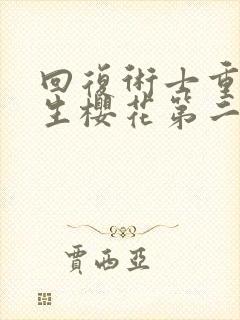 回復術士重
生櫻花第二
賈西亞